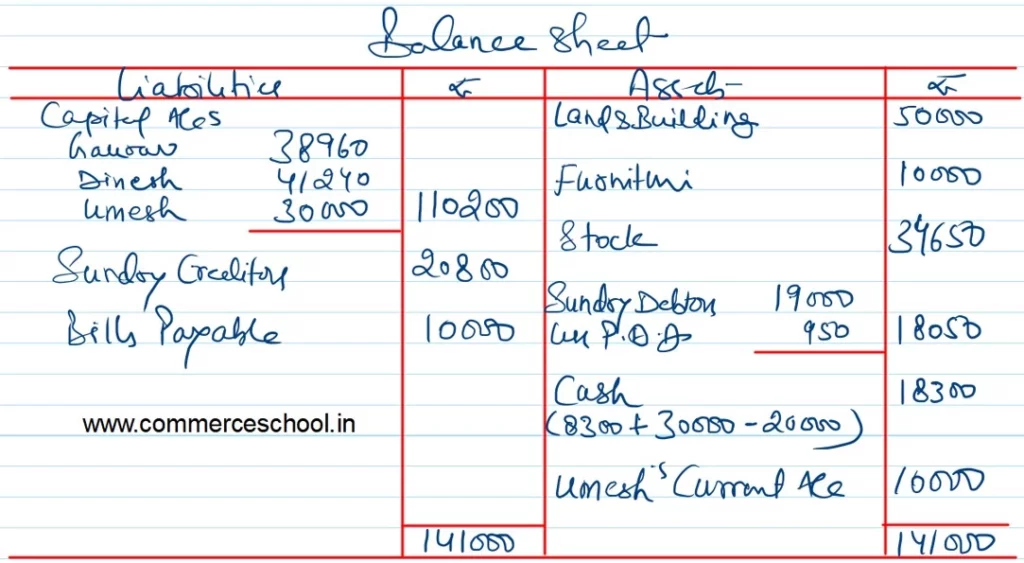 Balance Sheet
Liabilities ₹ Assets ₹
Capital A/cs Land & Building 50000
Gaurav 38960
Dinesh 41240 Furniture 10000
Umesh 30000 110200
Stock 34650
Sundry Creditors 20800
Sundry Debtors 19000
Bills Payable 10000 Less P.D.D 950 18050
Cash 18300
www.commerceschool.in (8300 + 30000 - 20000)
Umesh's Current A/c 10000
141000 141000